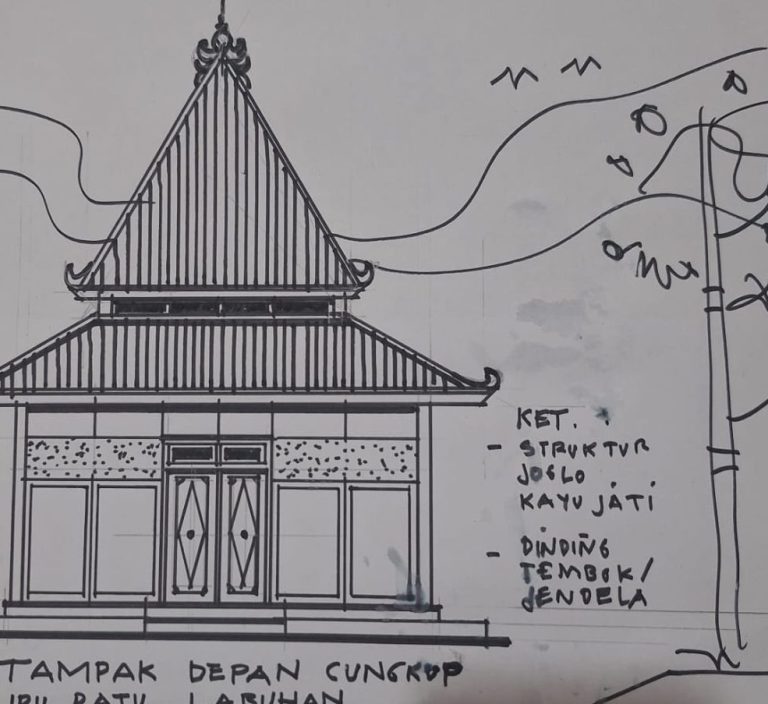 KET.
- STRUKTUR
JOGLO
KAYU JATI
- DINDING
TEMBOK/
JENDELA
TAMPAK DEPAN CUNGKUP
IBU RATU LABUHAN